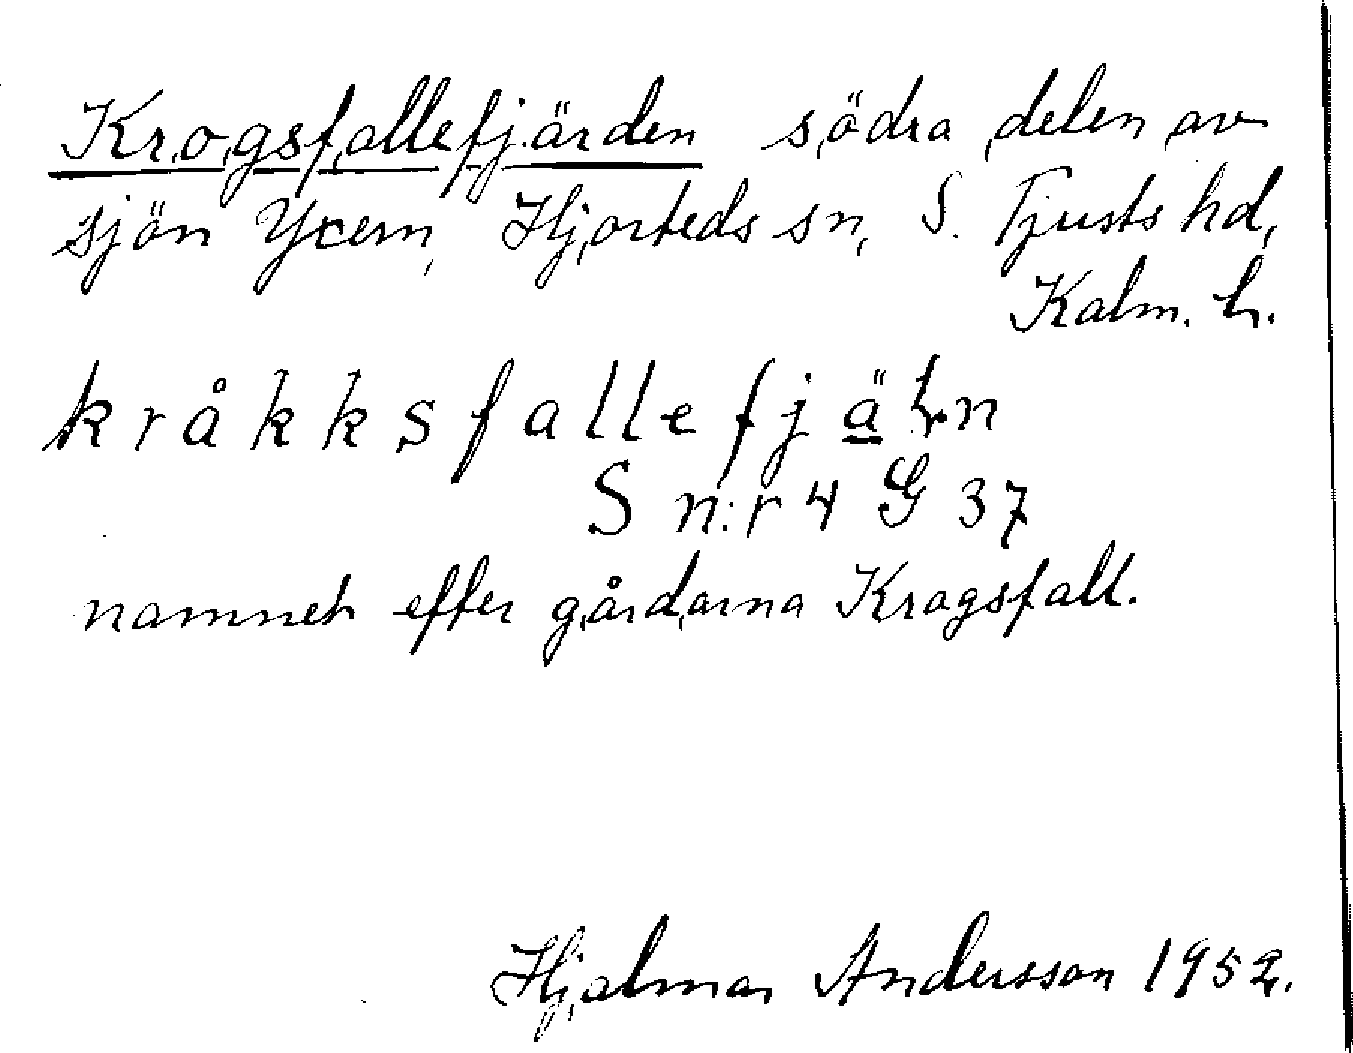 Krogsfallefjärden södra delen av
sjön Yxern, Hjorteds sn, S. Tjusts hd,
Kalm. L.
kråkksfallefjäLn
S n:r 4 G 37
namnet efter gårdarna Krogsfall.
Hjalmar Andersson 1952.